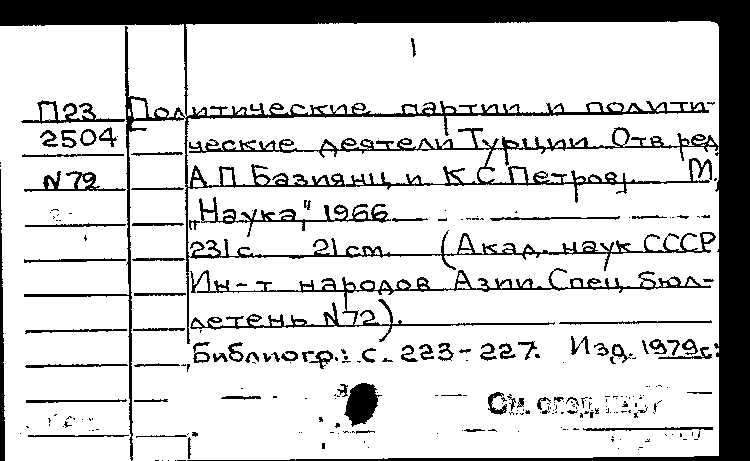 1
П23 Политические партии и полити-
2504 ческие деятели Турции. Отв. ред.
N72 А.П. Базиянц и К.С. Петров. М.,
„Наука," 1966.
231 с. 21 cm. (Акад. наук СССР.
Ин-т народов Азии. Спец. бюл-
летень N72).
Библиогр.: с. 223-227. Изд. 1979с:
См. след. карт